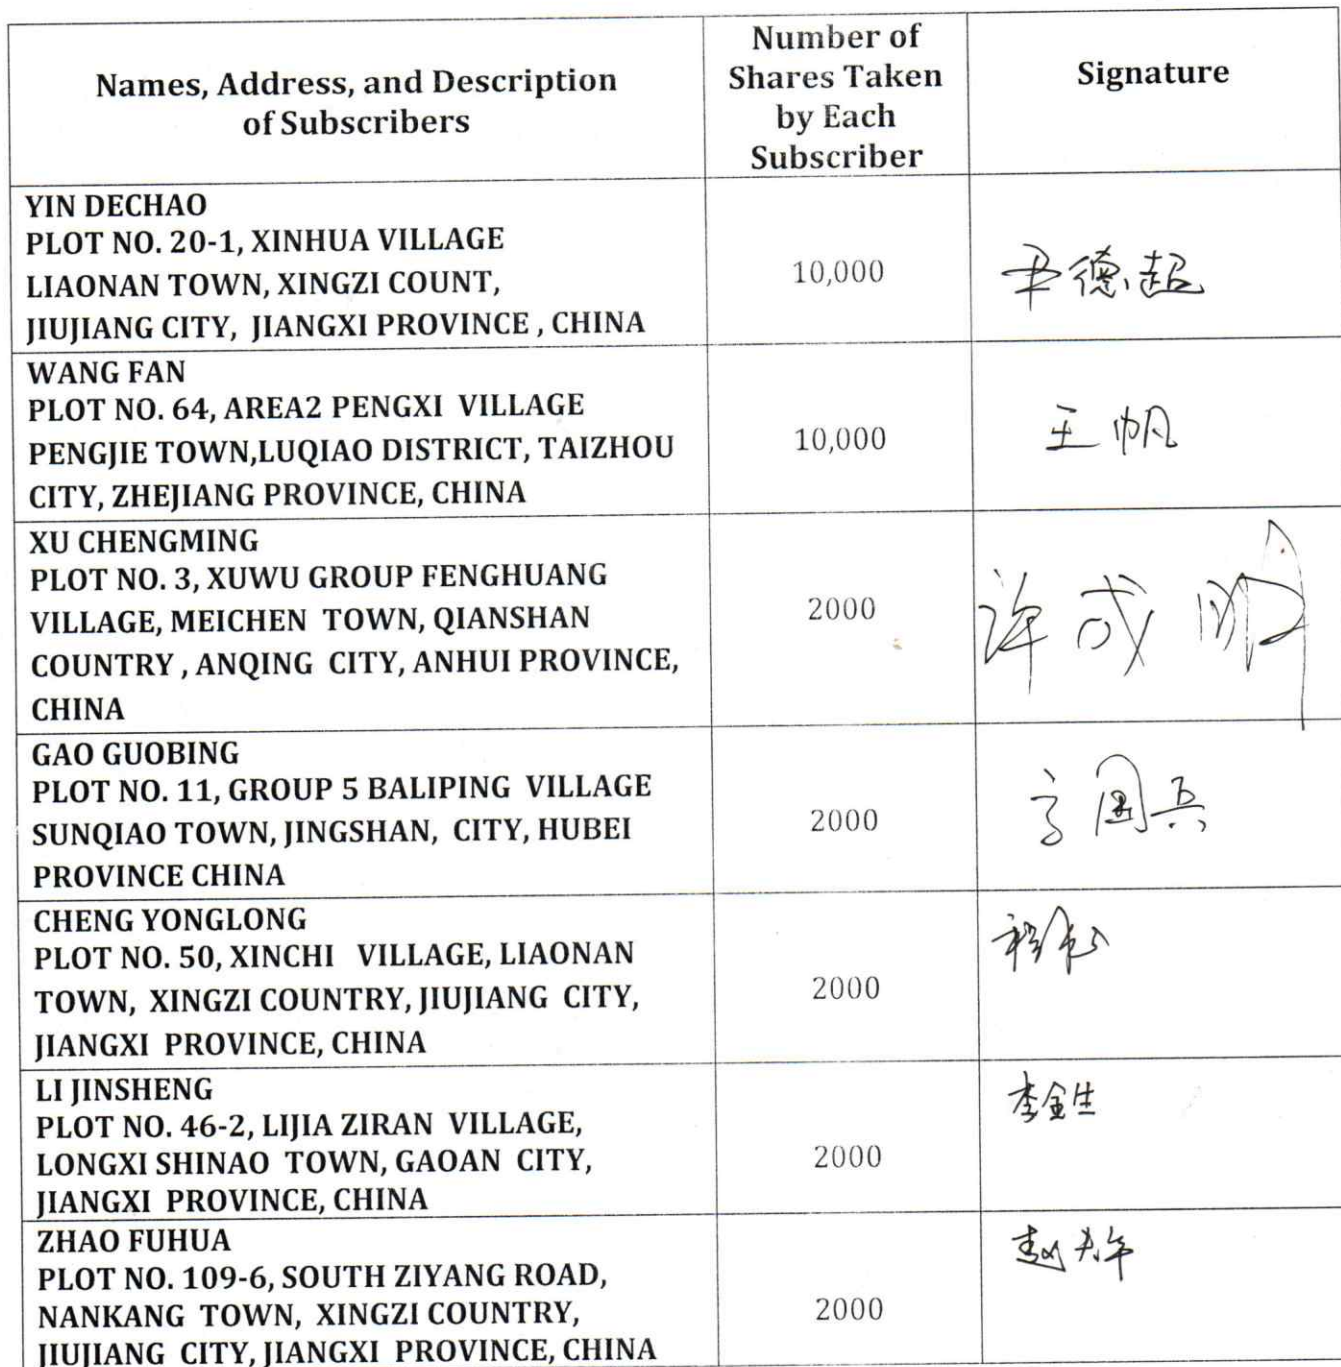 Names, Address, and Description
of Subscribers
Number of
Shares Taken
by Each
Subscriber
Signature
YIN DECHAO
PLOT NO. 20-1, XINHUA VILLAGE
LIAONAN TOWN, XINGZI COUNT,
JIUJIANG CITY, JIANGXI PROVINCE , CHINA
10,000
尹德超
WANG FAN
PLOT NO. 64, AREA2 PENGXI VILLAGE
PENGJIE TOWN,LUQIAO DISTRICT, TAIZHOU
CITY, ZHEJIANG PROVINCE, CHINA
10,000
王帆
XU CHENGMING
PLOT NO. 3, XUWU GROUP FENGHUANG
VILLAGE, MEICHEN TOWN, QIANSHAN
COUNTRY , ANQING CITY, ANHUI PROVINCE,
CHINA
2000
许成明
GAO GUOBING
PLOT NO. 11, GROUP 5 BALIPING VILLAGE
SUNQIAO TOWN, JINGSHAN, CITY, HUBEI
PROVINCE CHINA
2000
高国兵
CHENG YONGLONG
PLOT NO. 50, XINCHI VILLAGE, LIAONAN
TOWN, XINGZI COUNTRY, JIUJIANG CITY,
JIANGXI PROVINCE, CHINA
2000
LI JINSHENG
PLOT NO. 46-2, LIJIA ZIRAN VILLAGE,
LONGXI SHINAO TOWN, GAOAN CITY,
JIANGXI PROVINCE, CHINA
2000
李金生
ZHAO FUHUA
PLOT NO. 109-6, SOUTH ZIYANG ROAD,
NANKANG TOWN, XINGZI COUNTRY,
JIUJIANG CITY, JIANGXI PROVINCE, CHINA
2000